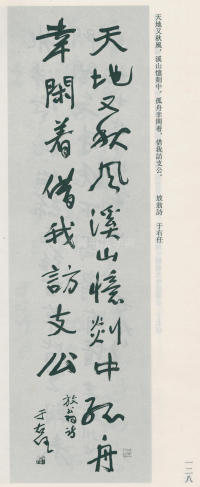 天地又秋風，溪山憶剡中，孤舟幸閒着，借我訪支公。 放翁詩 于右任
天地又秋風溪山憶剡中孤舟
幸閒着借我訪支公
放翁詩
于右任
一二八